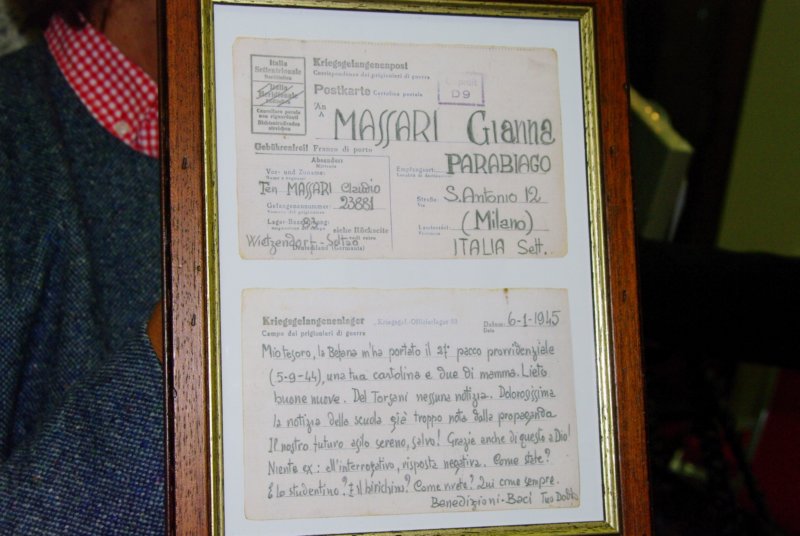 Italia
Settentrionale
Italia
Meridionale
Cancellare parole
non riguardanti
Nichtzutreffendes
streichen
Kriegsgefangenenpost
Corrispondenza dei prigionieri di guerra
Postkarte Cartolina postale
D9
An
A
MASSARI Gianna
Gebührenfrei! Franco di porto
Absender:
Mittente
Vor- und Zuname:
Nome e cognome
Ten MASSARI Claudio
Gefangenennummer: 23881
Lager-Bezeichnung: 83
siehe Rückseite
vedi retro
Wietzendorf-Soltau
Deutschland (Germania)
Empfangsort: PARABIAGO
Straße: S. Antonio 12
Via
(Milano)
Landesteil:
Provincia
ITALIA Sett.
Kriegsgefangenenlager
Kriegsgef.-Offizierlager 83
Datum: 6-1-1945
Data
Campo dei prigionieri di guerra
Mio tesoro, la Befana m'ha portato il 21° pacco provvidenziale
(5-9-44), una tua cartolina e due di mamma. Lieto
buone nuove. Del Torsani nessuna notizia. Dolorosissima
la notizia della scuola già troppo nota dalla propaganda
Il nostro futuro asilo sereno, salvo! Grazie anche di questo a Dio!
Niente ex: all'interrogativo, risposta negativa. Come state?
E lo studentino? E il birichino? Come vivete? Qui come sempre.
Benedizioni-Baci Tuo